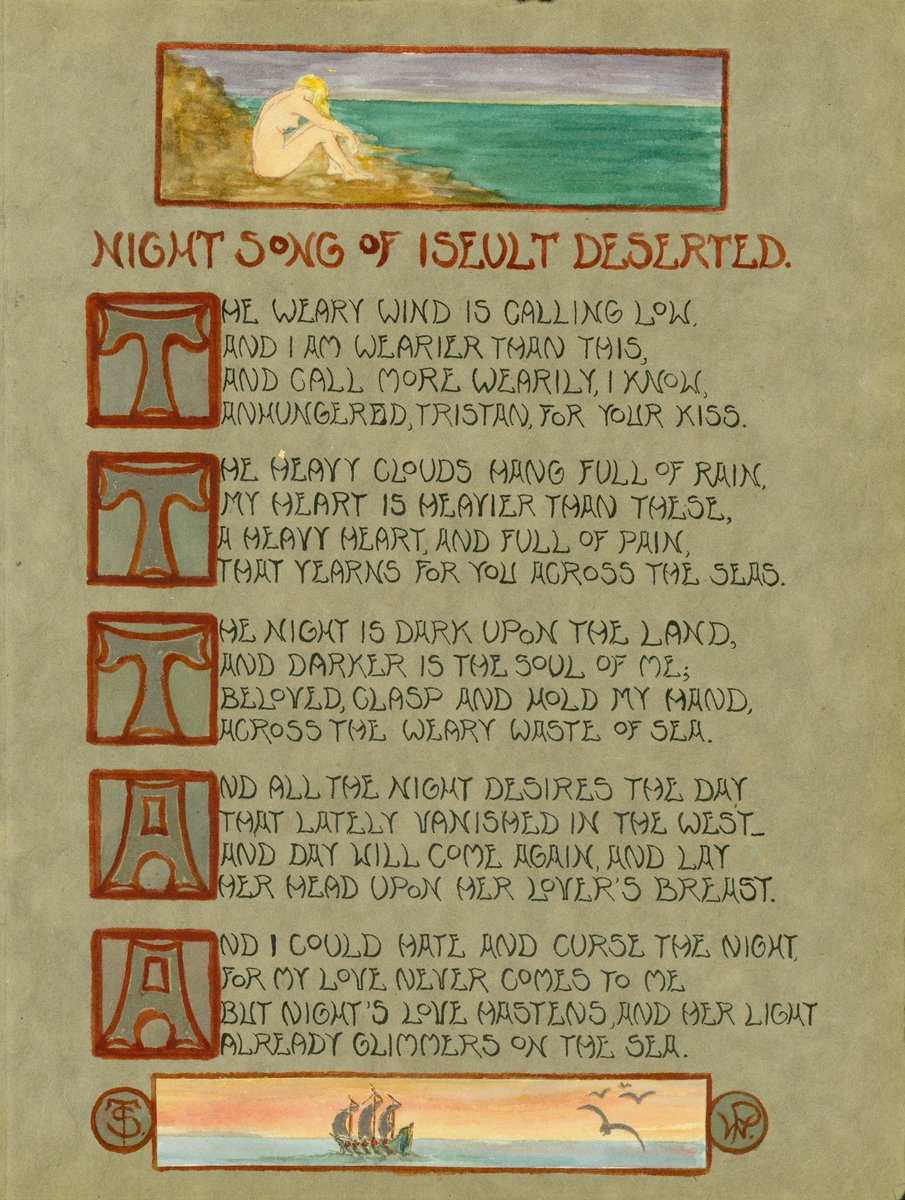 NIGHT SONG OF ISEULT DESERTED.
THE WEARY WIND IS CALLING LOW,
AND I AM WEARIER THAN THIS,
AND CALL MORE WEARILY, I KNOW,
ANHUNGERED, TRISTAN, FOR YOUR KISS.
THE HEAVY CLOUDS HANG FULL OF RAIN,
MY HEART IS HEAVIER THAN THESE,
A HEAVY HEART, AND FULL OF PAIN,
THAT YEARNS FOR YOU ACROSS THE SEAS.
THE NIGHT IS DARK UPON THE LAND,
AND DARKER IS THE SOUL OF ME;
BELOVED, CLASP AND HOLD MY HAND,
ACROSS THE WEARY WASTE OF SEA.
AND ALL THE NIGHT DESIRES THE DAY
THAT LATELY VANISHED IN THE WEST_
AND DAY WILL COME AGAIN, AND LAY
HER HEAD UPON HER LOVER'S BREAST.
AND I COULD HATE AND CURSE THE NIGHT,
FOR MY LOVE NEVER COMES TO ME
BUT NIGHT'S LOVE HASTENS, AND HER LIGHT
ALREADY GLIMMERS ON THE SEA.